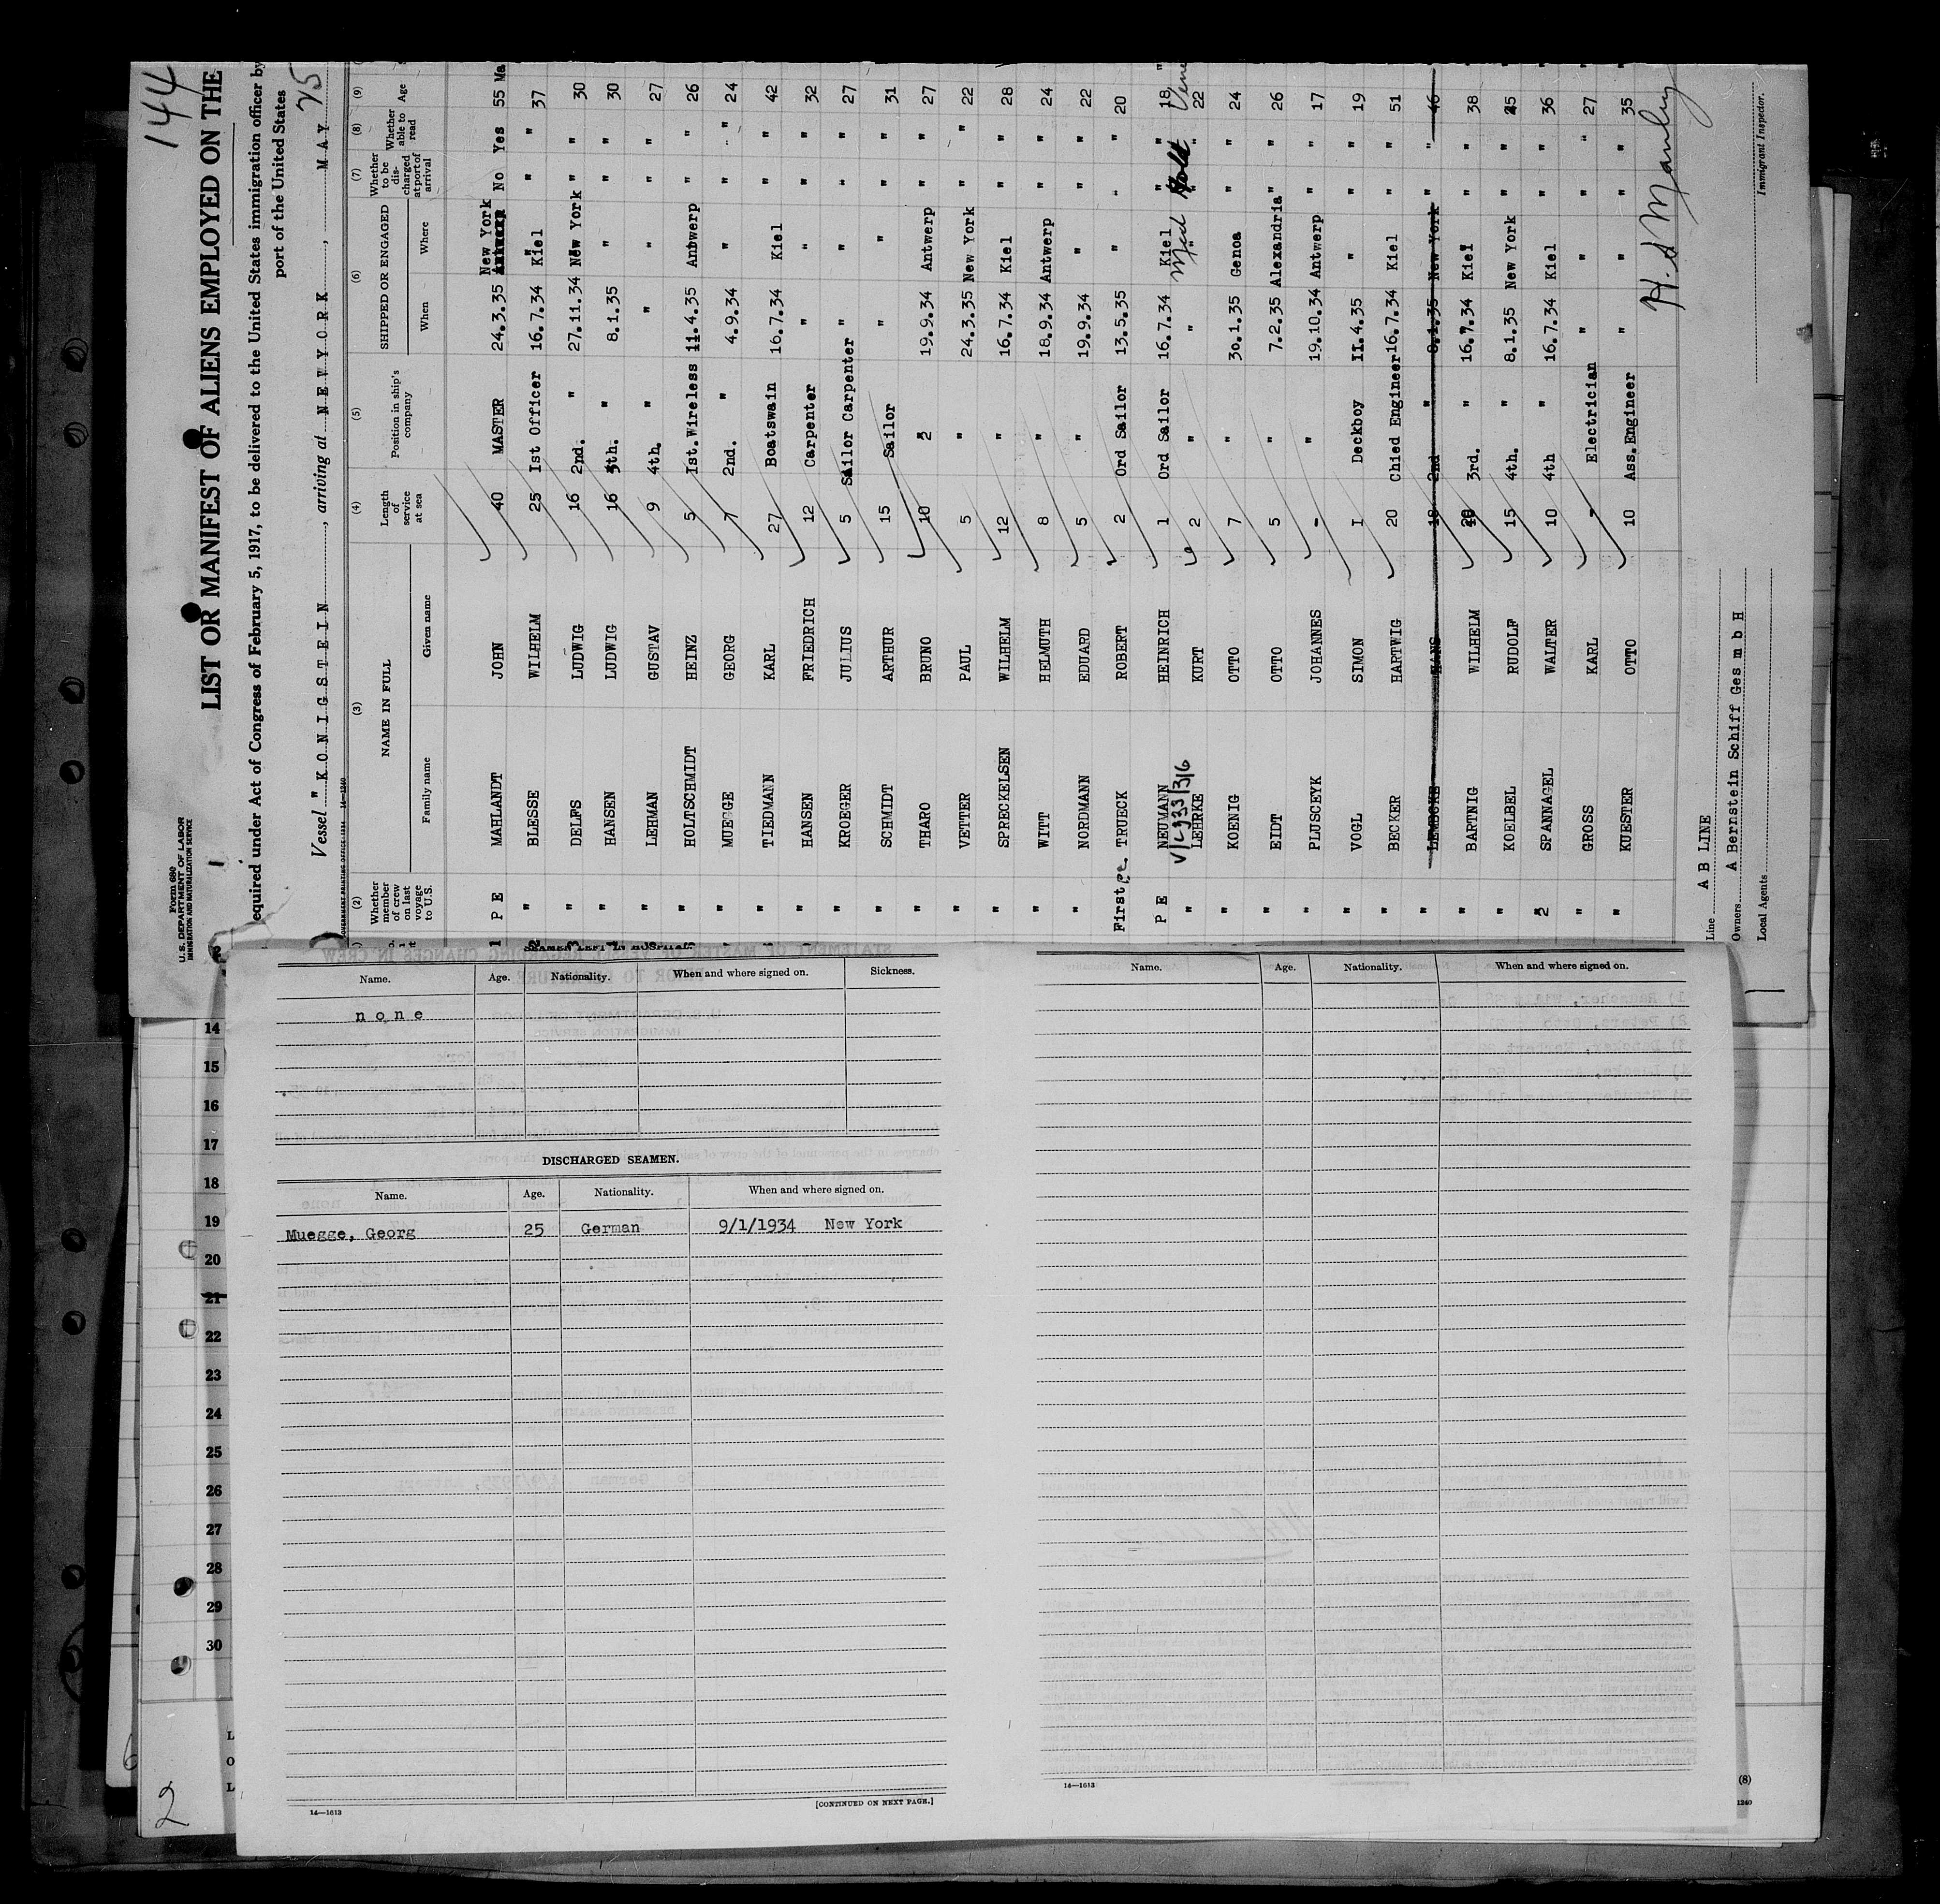 144
Form 680
U.S. DEPARTMENT OF LABOR
IMMIGRATION AND NATURALIZATION SERVICE
1
LIST OR MANIFEST OF ALIENS EMPLOYED ON THE
equired under Act of Congress of February 5, 1917, to be delivered to the United States immigration officer by
port of the United States
Vessel " KONIGSTEIN, arriving at NEW YORK, MAY 25
(2) (3) (4) (5) (6) (7) (8) (9)
Whether member of crew on last voyage to U.S. NAME IN FULL Length of service at sea Position in ship's company SHIPPED OR ENGAGED Whether to be discharged at port of arrival Whether able to read Age
Family name Given name When Where
1 P E MAHLANDT JOHN 40 MASTER 24.3.35 New York No Yes 55 Ma
2 " BLESSE WILHELM 25 1st Officer 16.7.34 Kiel " " 37
3 " DELFS LUDWIG 16 2nd. " 27.11.34 New York " " 30
" HANSEN LUDWIG 16 3th. " 8.1.35 " " " 30
" LEHMAN GUSTAV 9 4th. " " " " " 27
" HOLTSCHMIDT HEINZ 5 Ist.Wireless 11.4.35 Antwerp " " 26
" MUEGGE GEORG 7 2nd. " 4.9.34 " " " 24
" TIEDMANN KARL 27 Boatswain 16.7.34 Kiel " " 42
" HANSEN FRIEDRICH 12 Carpenter " " " " 32
" KROEGER JULIUS 5 Sailor Carpenter " " " " 27
" SCHMIDT ARTHUR 15 Sailor " " " " 31
" THARO BRUNO 10 2 19.9.34 Antwerp " " 27
" VETTER PAUL 5 " 24.3.35 New York " " 22
" SPRECKELSEN WILHELM 12 " 16.7.34 Kiel " " 28
" WITT HELMUTH 8 " 18.9.34 Antwerp " " 24
" NORDMANN EDUARD 5 " 19.9.34 " " " 22
First pe. TRUECK ROBERT 2 Ord Sailor 13.5.35 " " " 20
P E NEUMANN HEINRICH 1 Ord Sailor 16.7.34 Kiel " " 18 "
V/L 333/316
" LEHRKE KURT 2 " " " " " 22
" KOENIG OTTO 7 " 30.1.35 Genoa " " 24
" EIDT OTTO 5 " 7.2.35 Alexandria " " 26
" PLUSCEYK JOHANNES - " 19.10.34 Antwerp " " 17
" VOGL SIMON I Deckboy II.4.35 " " " 19
" BECKER HARTWIG 20 Chied Engineer 16.7.34 Kiel " " 51
" LEMBCKE HANS 18 2nd " 8.1.35 New York " " 46
" BARTNIG WILHELM 3rd. " 16.7.34 Kiel " " 38
" KOELBEL RUDOLF 15 4th. " 8.1.35 New York " " 35
2 SPANNAGEL WALTER 10 4th " 16.7.34 Kiel " " 36
" GROSS KARL Electrician " " " " 27
" KUESTER OTTO 10 Ass.Engineer " " " " 35
Line A B LINE
Owners A Bernstein Schiff Ges m b H
Local Agents
Immigrant Inspector.
SEAMEN LEFT IN HOSPITAL.
Name. Age. Nationality. When and where signed on. Sickness.
none
DISCHARGED SEAMEN.
Name. Age. Nationality. When and where signed on.
Muegge, Georg 25 German 9/1/1934 New York
14—1613
[CONTINUED ON NEXT PAGE.]
Name. Age. Nationality. When and where signed on.
14—1613
14
15
16
17
18
19
20
21
22
23
24
25
26
27
28
29
30
L
O
L
6
2
(8)
1240